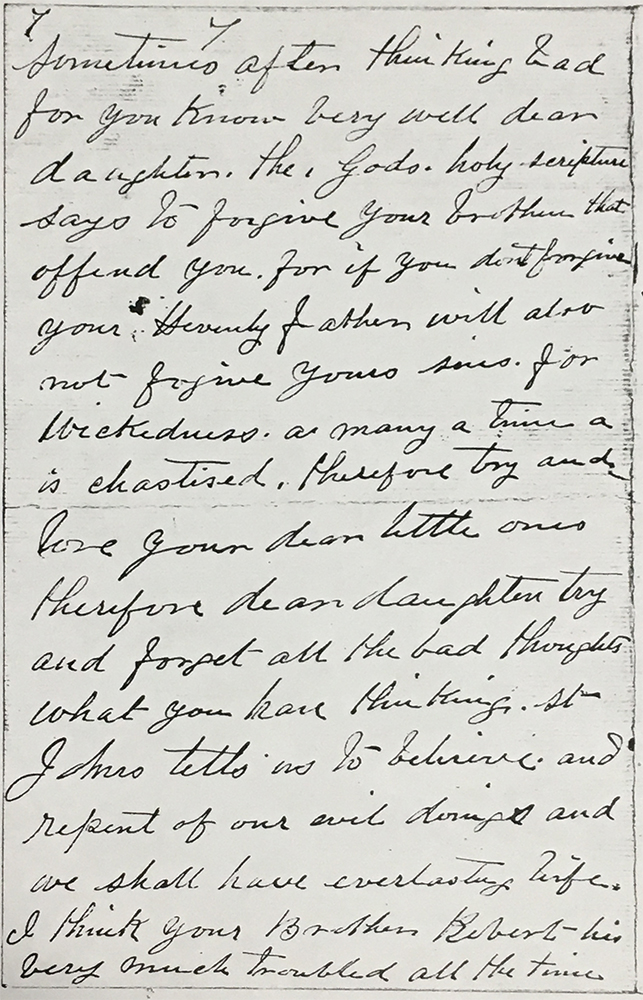 7 7
Sometimes after thinking bad
for you know very well dear
daughter. the, Gods. holy scripture
says to forgive your brother that
offend you. for if you dont forgive
your Hevenly father will also
not fogive yours sins. for
Wickedness. as many a time a
is chastised. therefore try and
love your dear little ones
therefore dear daughter try
and forget all the bad thoughts
what you have thinking. st
Johns tells us to believe. and
repent of our evil doings and
we shall have everlasting life.
I think your Brother Robert his
very much troubled all the time